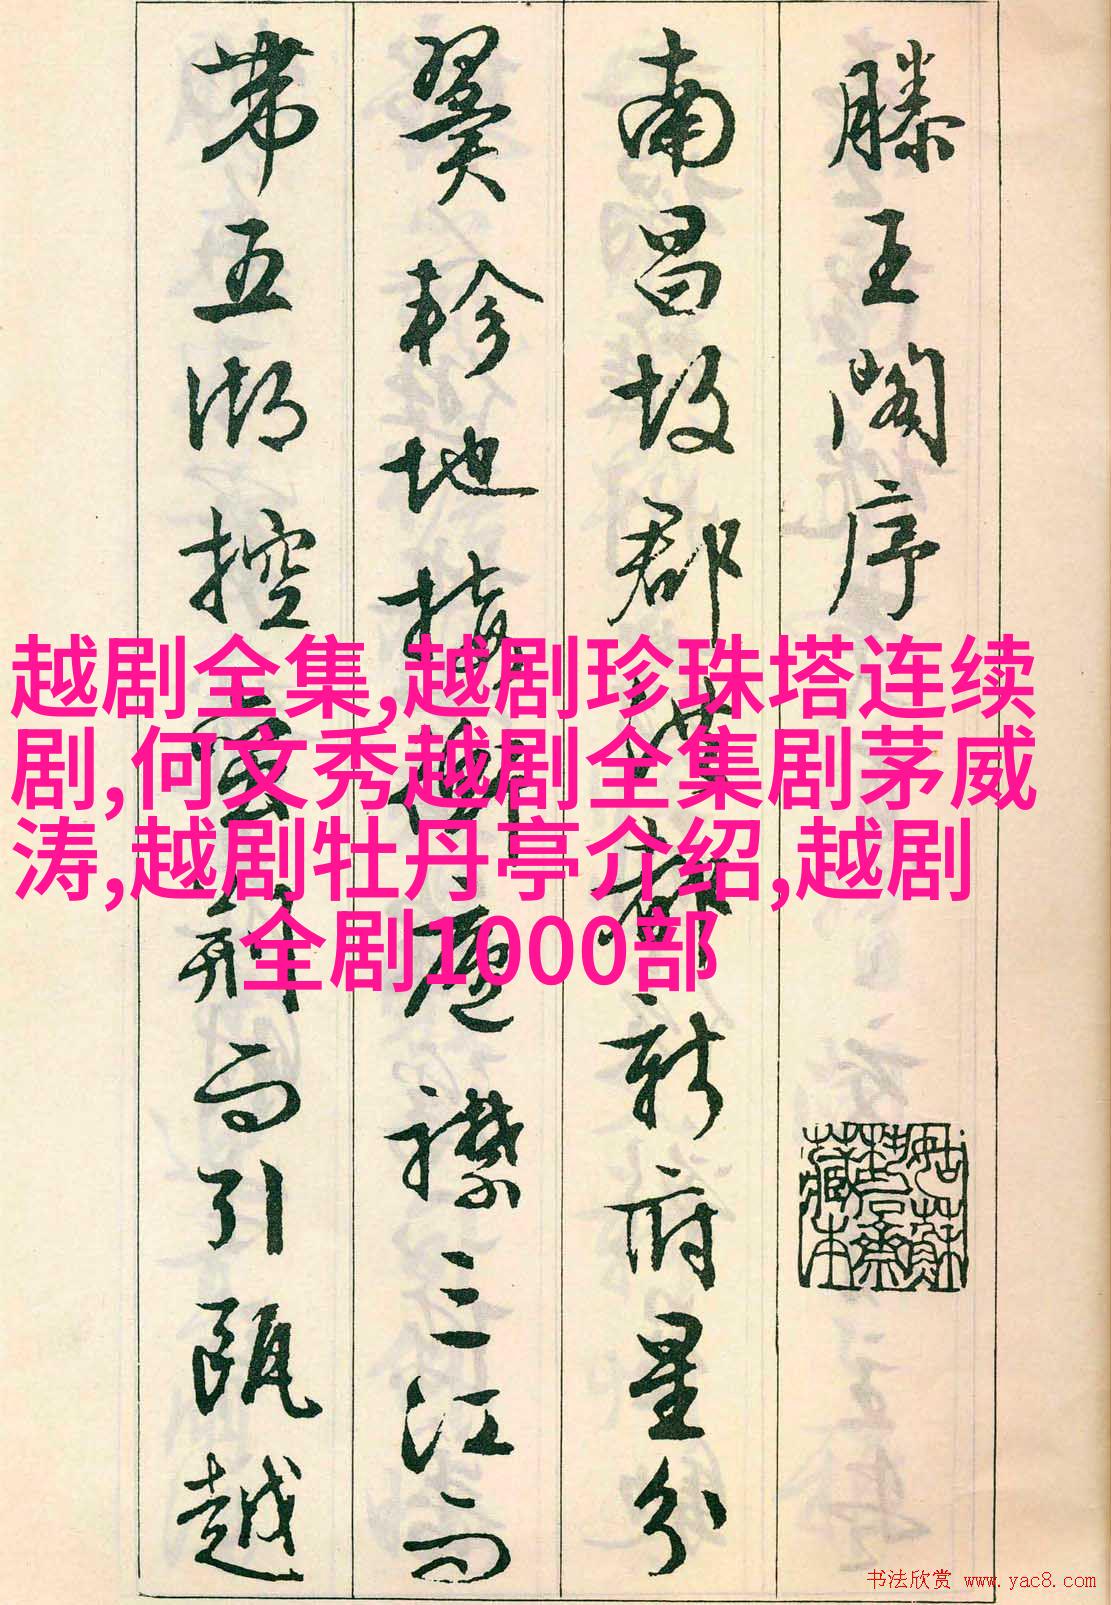 滕王閣序
南昌故郡洪都新府星分
翼軫地接衡廬襟三江而
帶五湖控蠻荊而引甌越
越剧全集,越剧珍珠塔连续
剧,何文秀越剧全集剧茅威
涛,越剧牡丹亭介绍,越剧
全剧1000部
书法欣赏 www.yac8.com